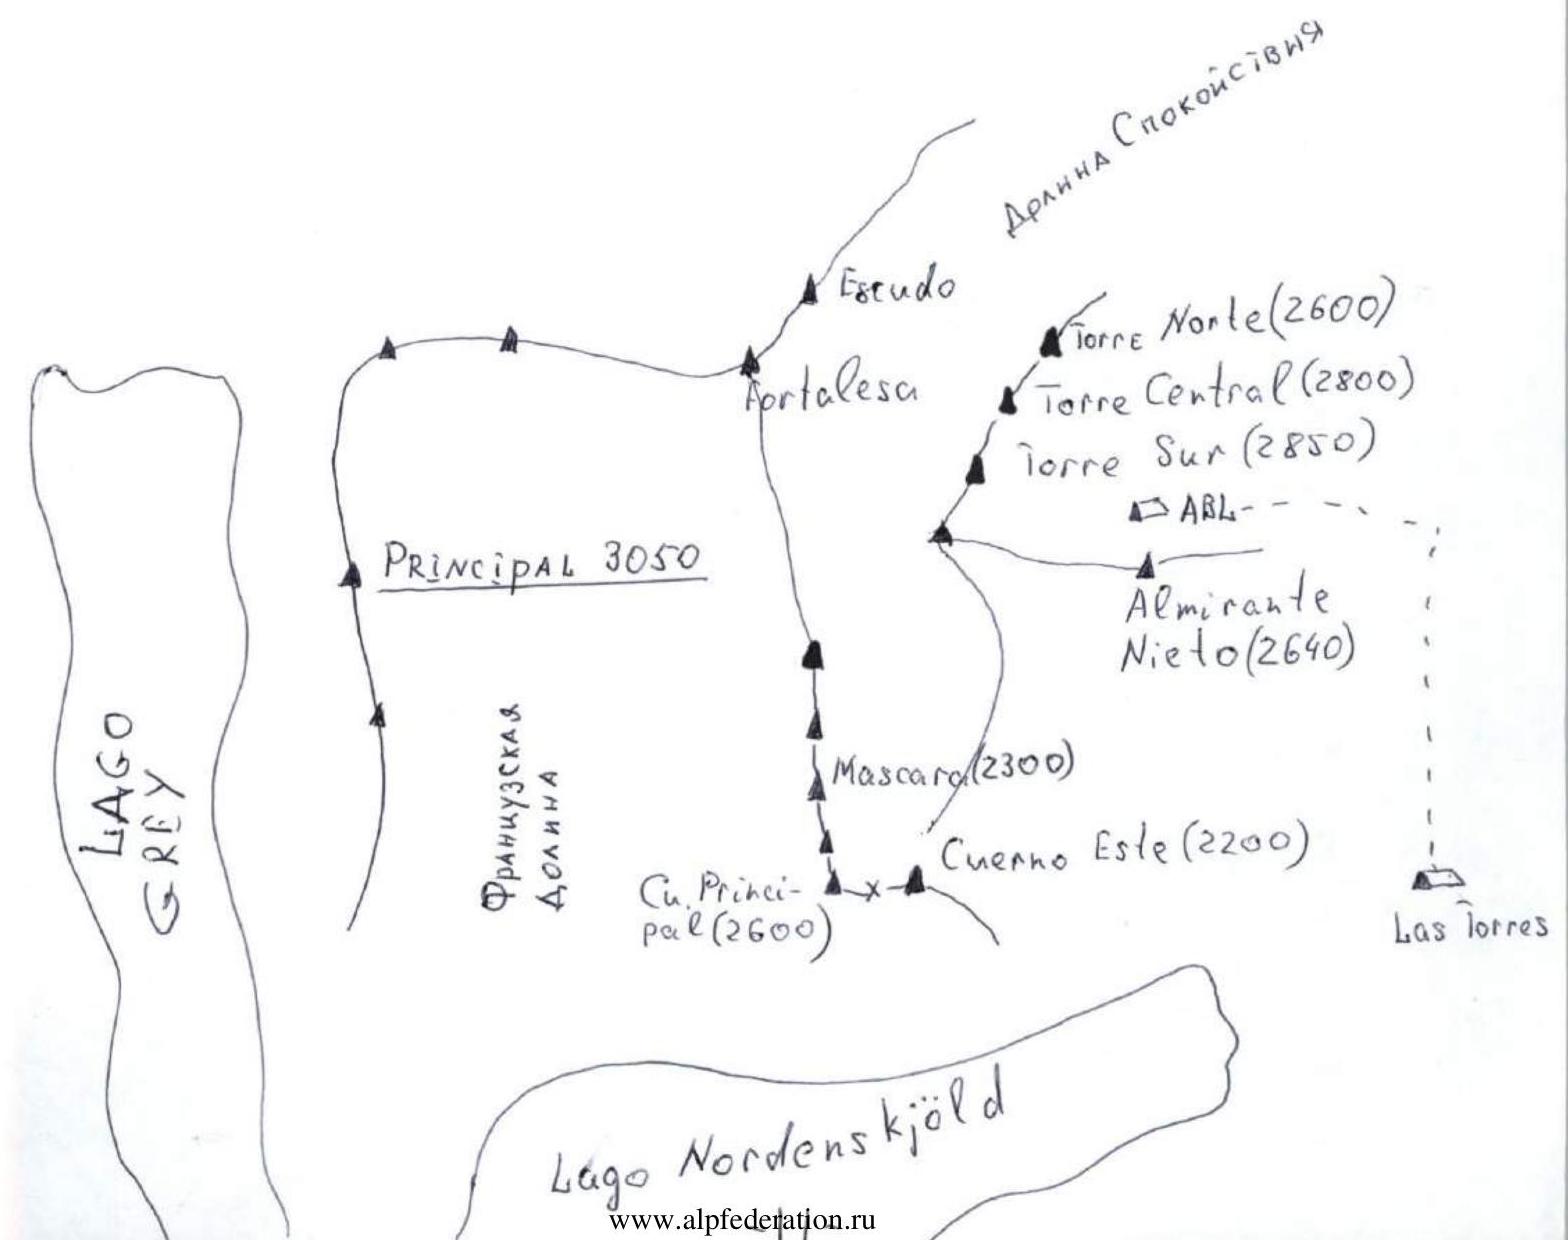 Долина Спокойствия
Escudo
Torre Norte (2600)
Fortalesa
Torre Central (2800)
Torre Sur (2850)
ABL
PRINCIPAL 3050
Almirante
Nieto (2640)
LAGO
GREY
Французская
Долина
Mascara (2300)
Cuerno Este (2200)
Cu. Princi-
pal (2600)
x
Las Torres
Lago Nordenskjöld
www.alpfederation.ru